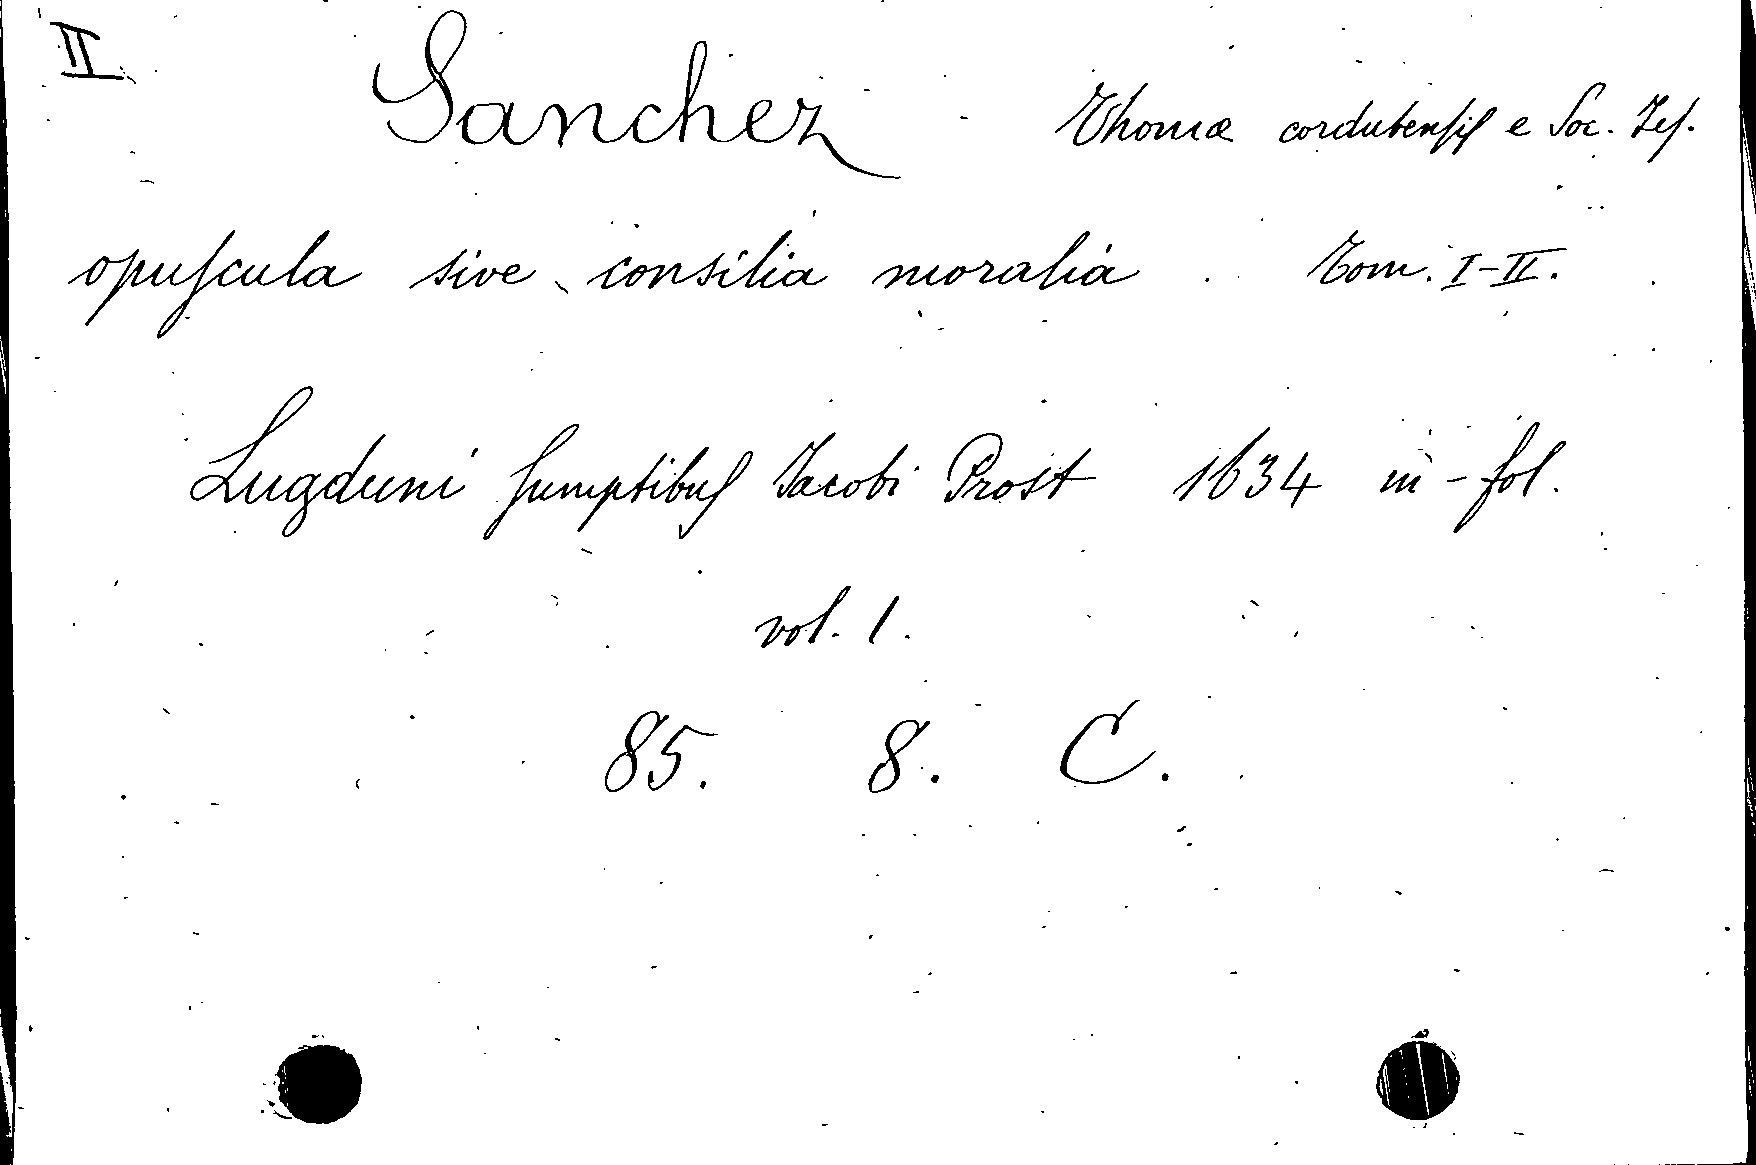 II
Sanchez Thomæ cordubensis e Soc. Jes.
opuscula sive consilia moralia Tom. I-II.
Lugduni sumptibus Jacobi Prost 1634 in-fol.
vol. 1.
85. 8. C.